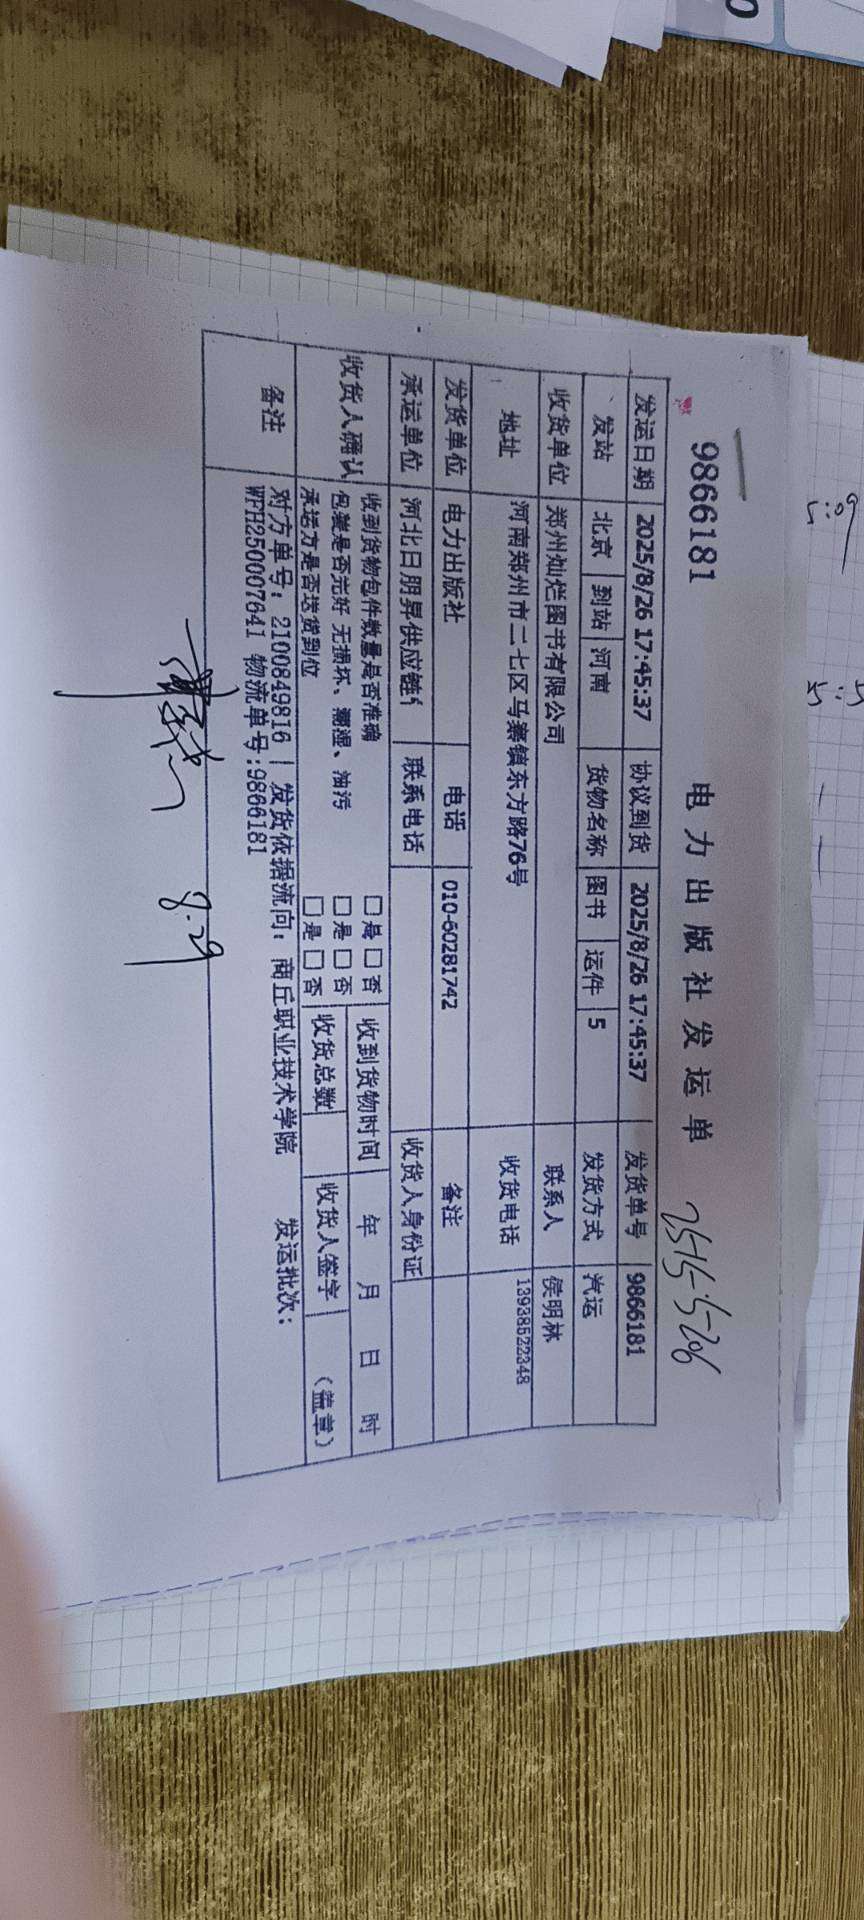 9866181 电力出版社发运单 2515·5206
发运日期 2025/8/26 17:45:37 协议到货 2025/8/26 17:45:37 发货单号 9866181
发站 北京 到站 河南 货物名称 图书 运件 5 发货方式 汽运
收货单位 郑州灿烂图书有限公司 联系人 侯明林
地址 河南郑州市二七区马寨镇东方路76号 收货电话 13938522348
发货单位 电力出版社 电话 010-60281742 备注
承运单位 河北日朋昇供应链 联系电话 收货人身份证
收货人确认 收到货物包件数量是否准确 □是 □否 收到货物时间 年 月 日 时
包装是否完好 无损坏、潮湿、油污 □是 □否 收货总数 收货人签字 (盖章)
承运方是否送货到位 □是 □否
备注 对方单号: 2100849816 | 发货依据流向: 商丘职业技术学院 发运批次:
WFH250007641 物流单号:9866181
8.29
5:09